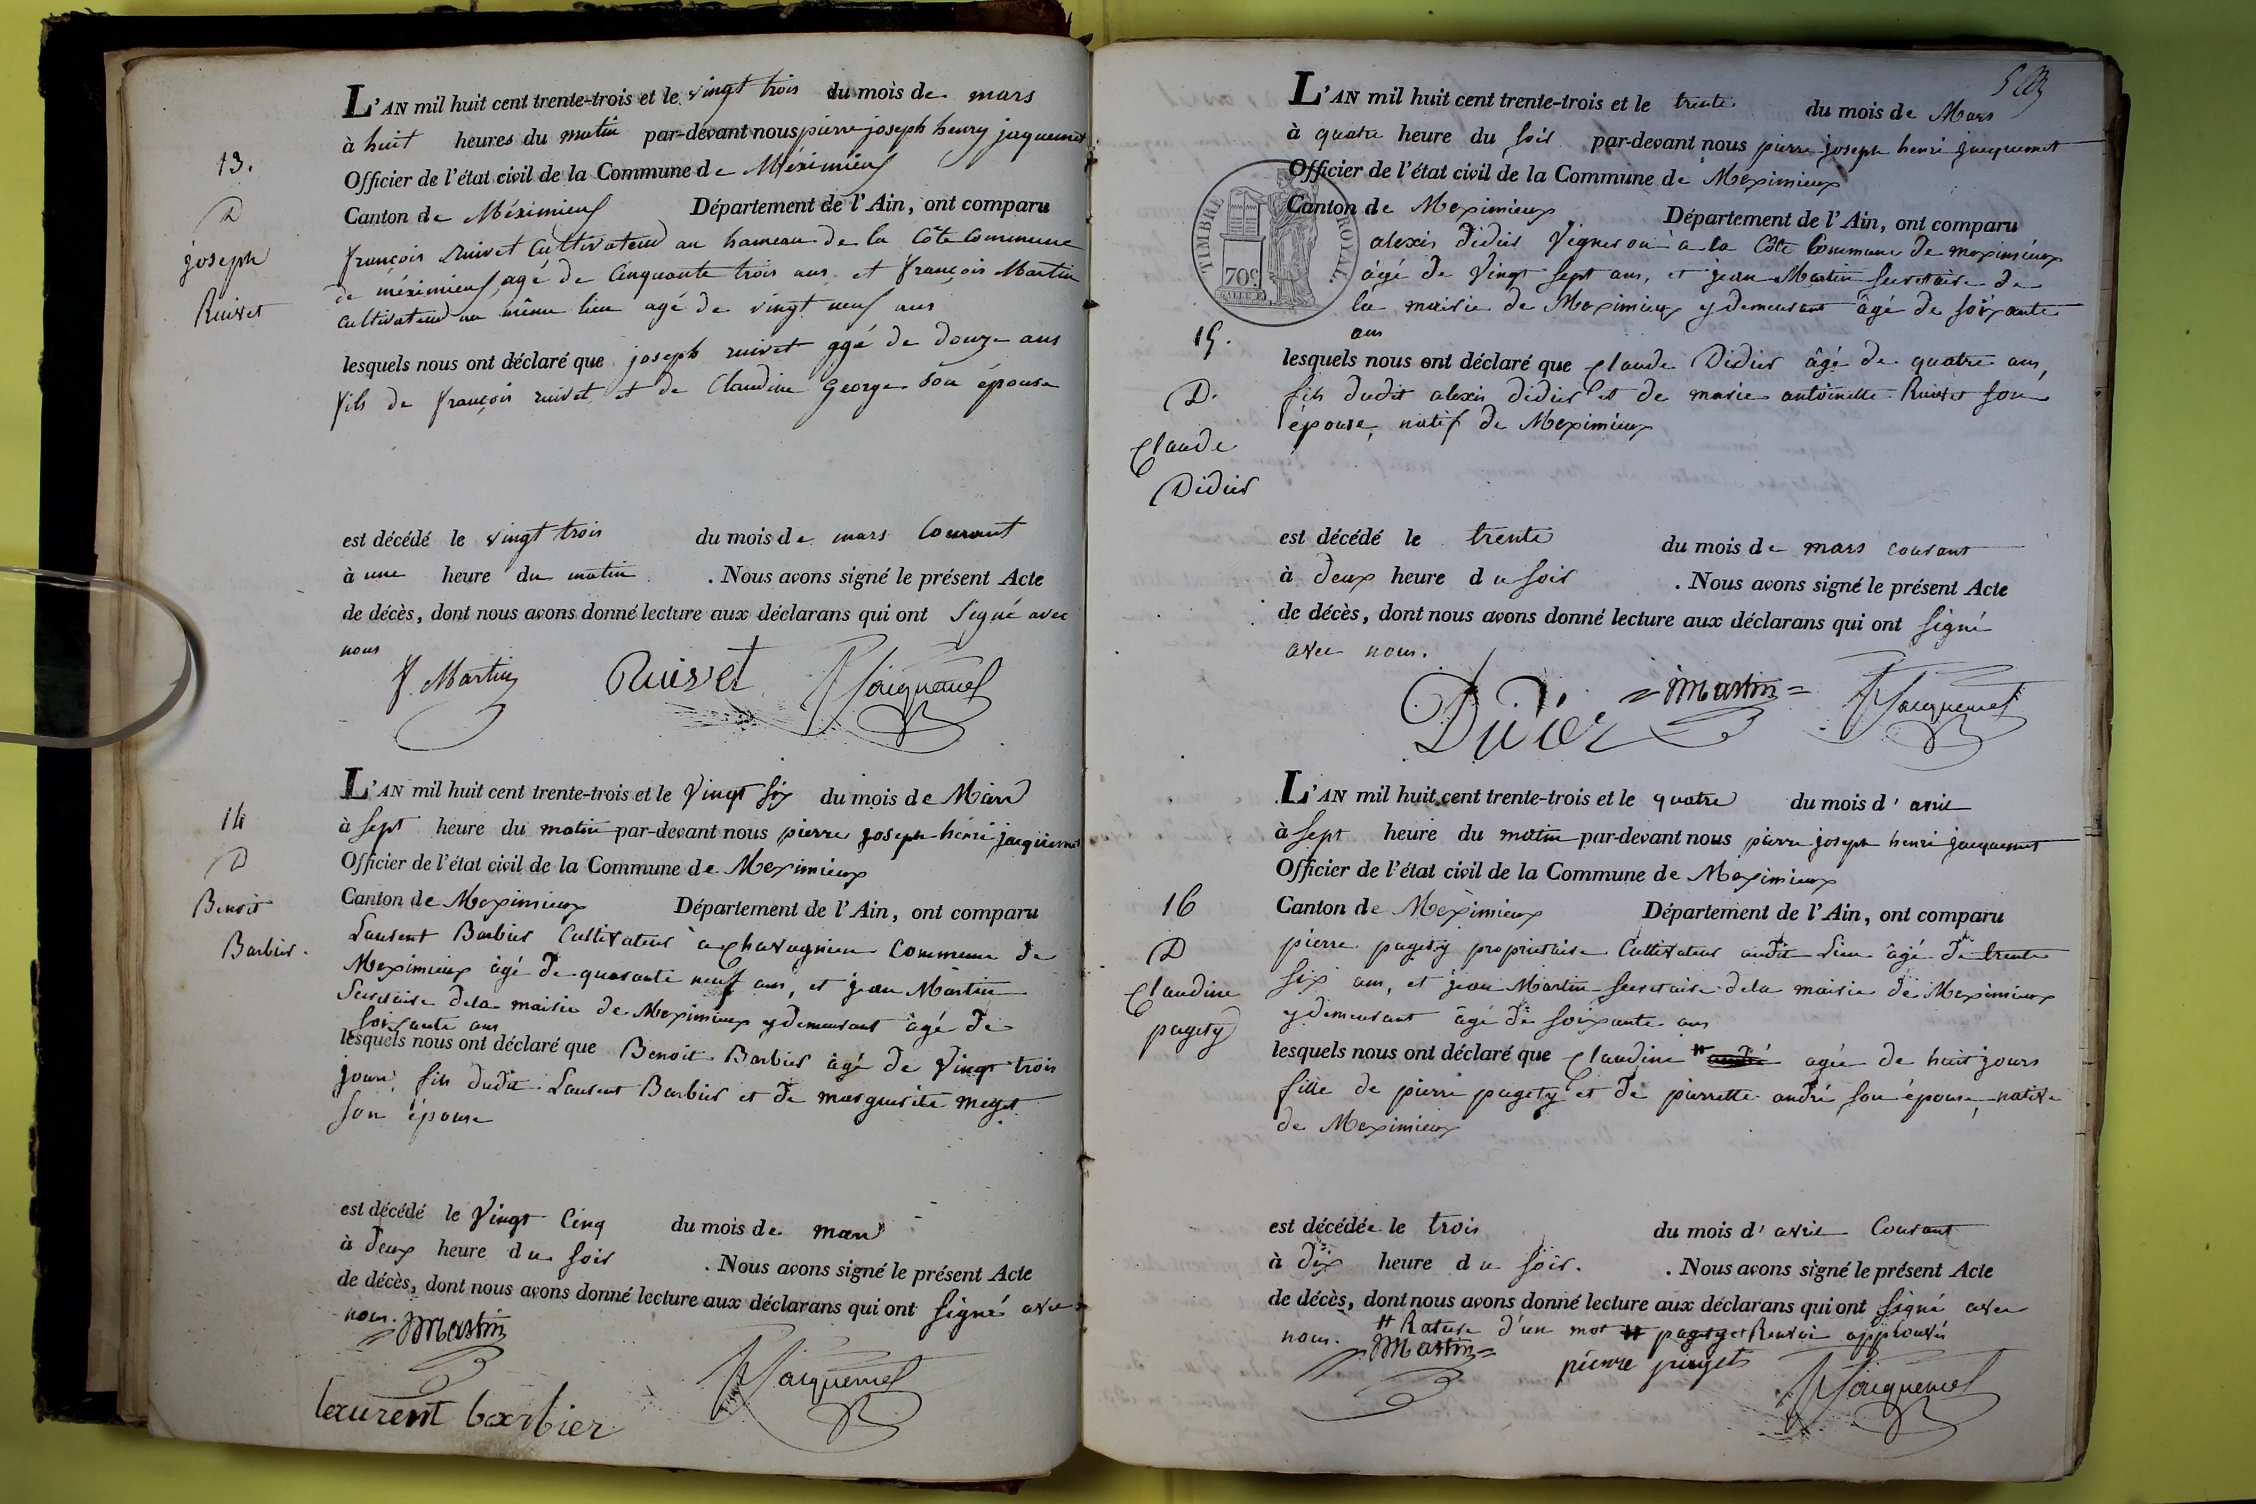 13.
D
joseph
Ruivet
L'AN mil huit cent trente-trois et le vingt trois du mois de mars
à huit heures du matin par-devant nous pierre joseph henry jacquemet
Officier de l'état civil de la Commune de Méximieux
Canton de Méximieux Département de l'Ain, ont comparu
françois ruivet Cultivateur au hameau de la Côte Commune
de méximieux, agé de Cinquante trois ans et françois Martin
Cultivateur au même lieu agé de vingt neuf ans
lesquels nous ont déclaré que joseph ruivet agé de douze ans
fils de françois ruivet et de Claudine George son épouse
est décédé le vingt trois du mois de mars Courant
à une heure du matin . Nous avons signé le présent Acte
de décès, dont nous avons donné lecture aux déclarans qui ont Signé avec
nous
f. Martin Ruivet Jacquemet
14
D
Benoit
Barbier.
L'AN mil huit cent trente-trois et le Vingt Six du mois de Mars
à Sept heure du matin par-devant nous pierre joseph henri jacquemet
Officier de l'état civil de la Commune de Meximieux
Canton de Meximieux Département de l'Ain, ont comparu
Laurent Barbier Cultivateur à Chavagnieu Commune de
Meximieux âgé de quarante neuf ans, et jean Martin
Secretaire dela mairie de Meximieux y demeurant âgé de
soixante ans
lesquels nous ont déclaré que Benoit Barbier âgé de Vingt trois
jours, fils dudit Laurent Barbier et de marguerite
son épouse
est décédé le Vingt Cinq du mois de mars
à deux heure du soir . Nous avons signé le présent Acte
de décès, dont nous avons donné lecture aux déclarans qui ont Signé avec
nous. Martin
Jacquemet
laurent barbier
L'AN mil huit cent trente-trois et le trente du mois de Mars
à quatre heure du soir par-devant nous pierre joseph henri jacquemet
Officier de l'état civil de la Commune de Meximieux
Canton de Meximieux Département de l'Ain, ont comparu
TIMBRE ROYAL
70c
alexis didier Vigneron à la Côte Commune de meximieux
âgé de Vingt Sept ans, et jean Martin Secretaire de
la mairie de Meximieux y demeurant âgé de soixante
ans
15.
D.
Claude
Didier
lesquels nous ont déclaré que Claude Didier âgé de quatre ans,
fils dudit alexis didier et de marie antoinette Ruivet son
épouse, natif de Meximieux
est décédé le trente du mois de mars courant
à deux heure du soir . Nous avons signé le présent Acte
de décès, dont nous avons donné lecture aux déclarans qui ont signé
avec nous.
Didier Martin Jacquemet
L'AN mil huit cent trente-trois et le quatre du mois d'avril
à Sept heure du matin par-devant nous pierre joseph henri jacquemet
Officier de l'état civil de la Commune de Meximieux
16
D
Claudine
pagety
Canton de Meximieux Département de l'Ain, ont comparu
pierre pagety proprietaire Cultivateur audit Lieu âgé de trente
six ans, et jean Martin Secretaire dela mairie de Meximieux
y demeurant âgé de soixante ans
lesquels nous ont déclaré que Claudine # andré agée de huit jours
fille de pierre pagety et de pierrette andré son épouse, native
de Meximieux
est décédée le trois du mois d'avril Courant
à dix heure du soir. . Nous avons signé le présent Acte
de décès, dont nous avons donné lecture aux déclarans qui ont Signé avec
nous. # Rature d'un mot # pagety et Renvoi approuvés
Martin pierre Jacquemet